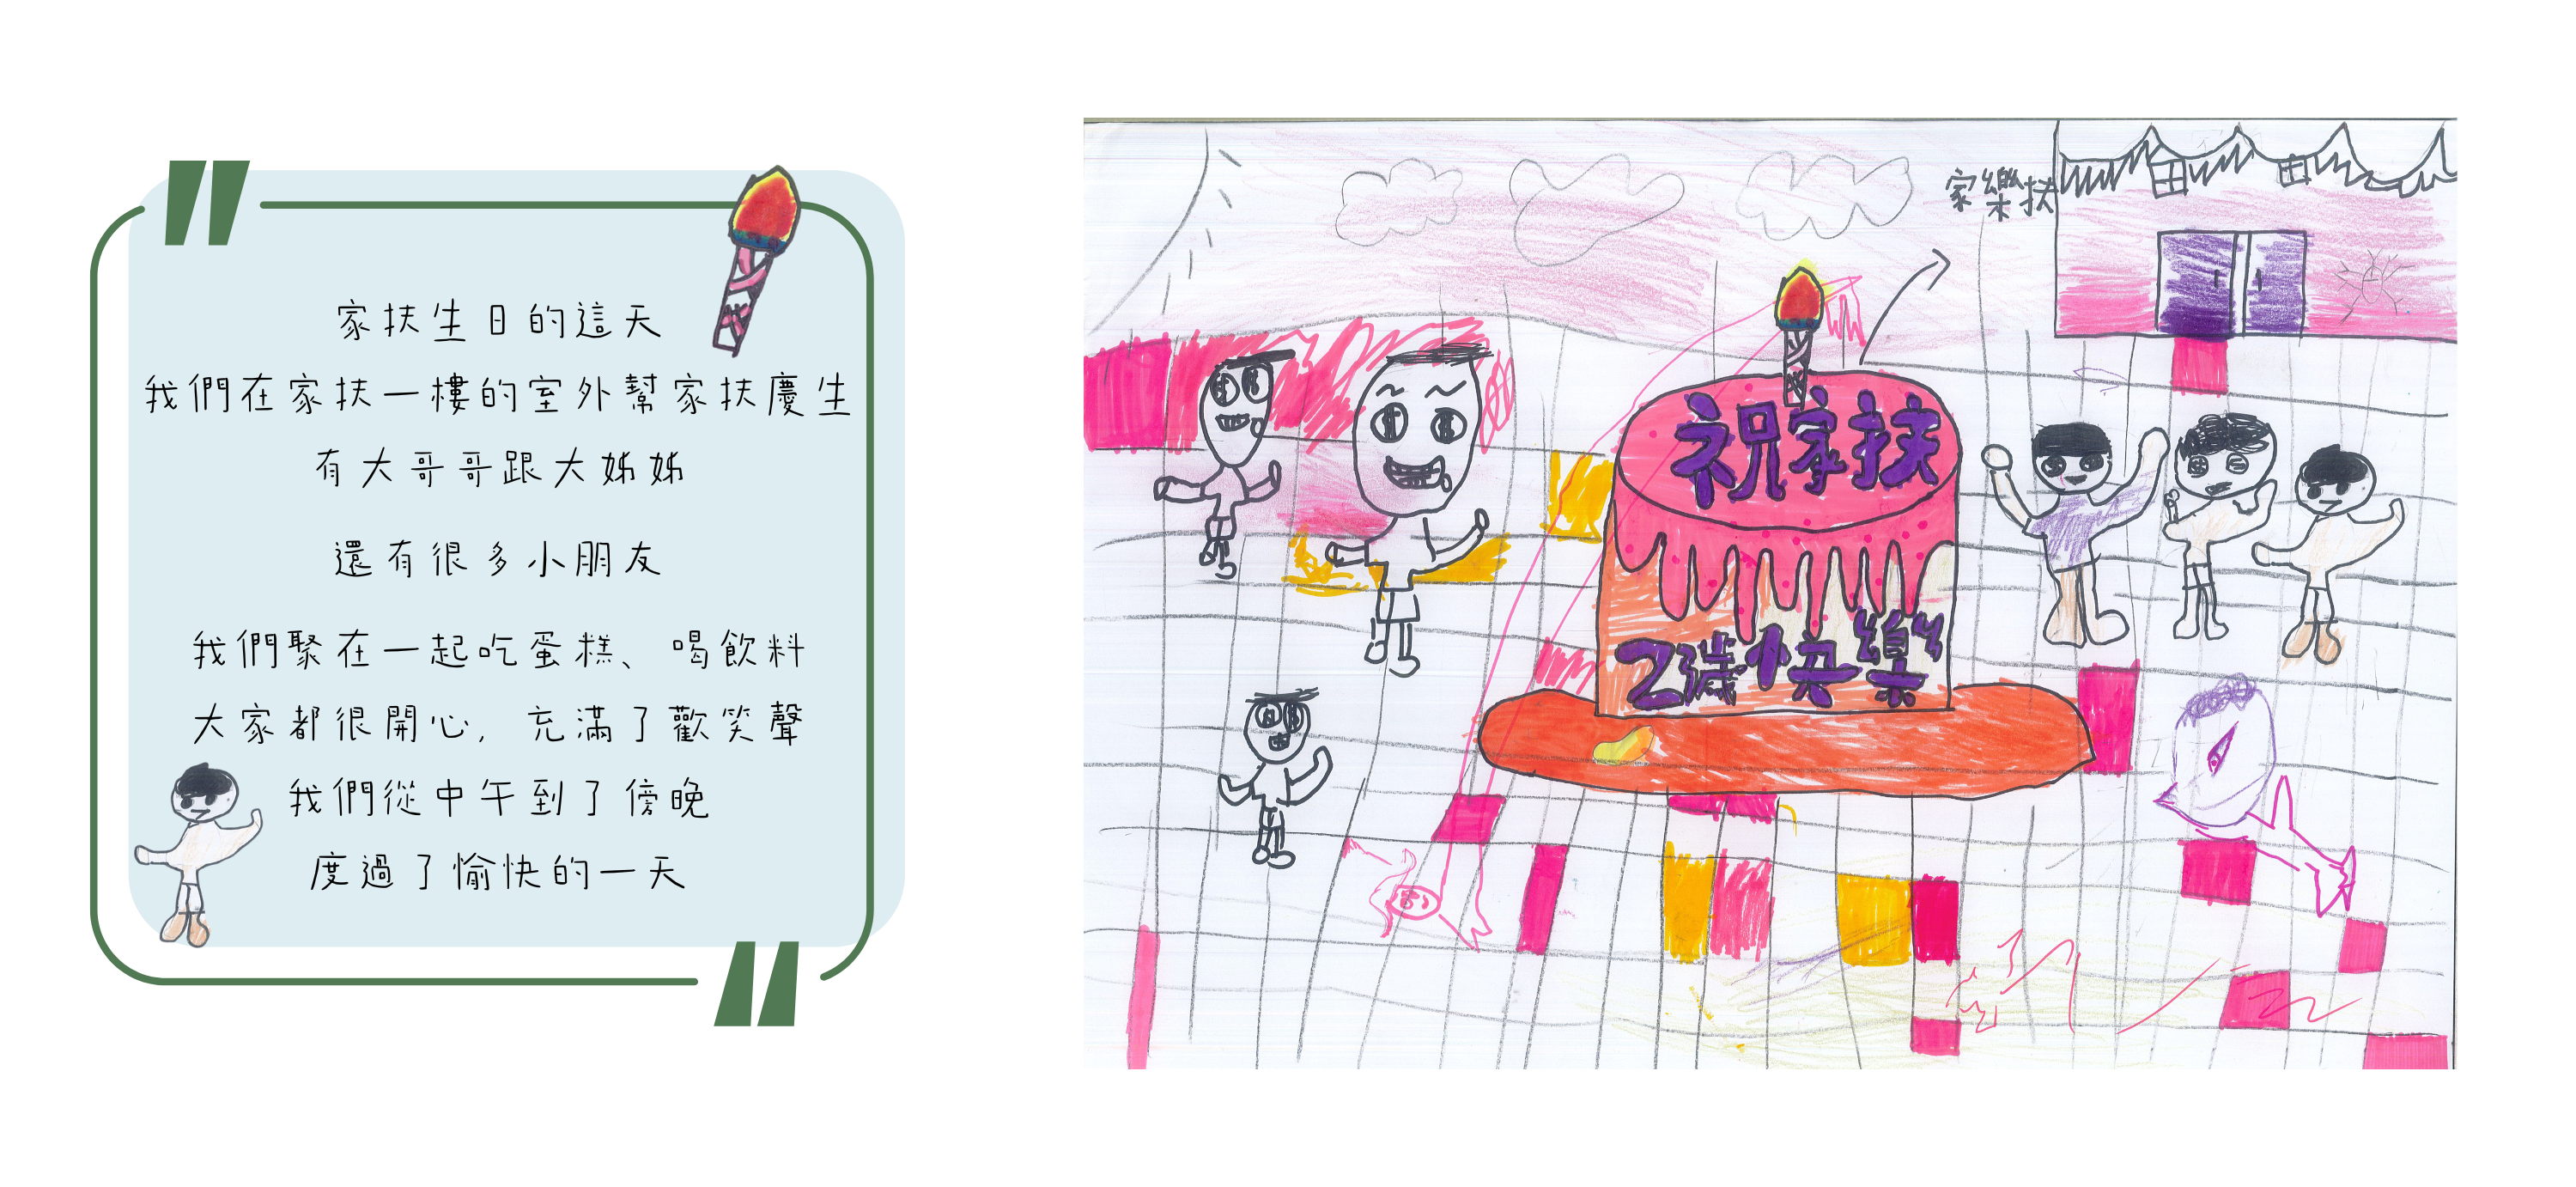 家扶生日的這天
我們在家扶一樓的室外幫家扶慶生
有大哥哥跟大姊姊
還有很多小朋友
我們聚在一起吃蛋糕、喝飲料
大家都很開心，充滿了歡笑聲
我們從中午到了傍晚
度過了愉快的一天
家樂扶
祝家扶
2歲快樂